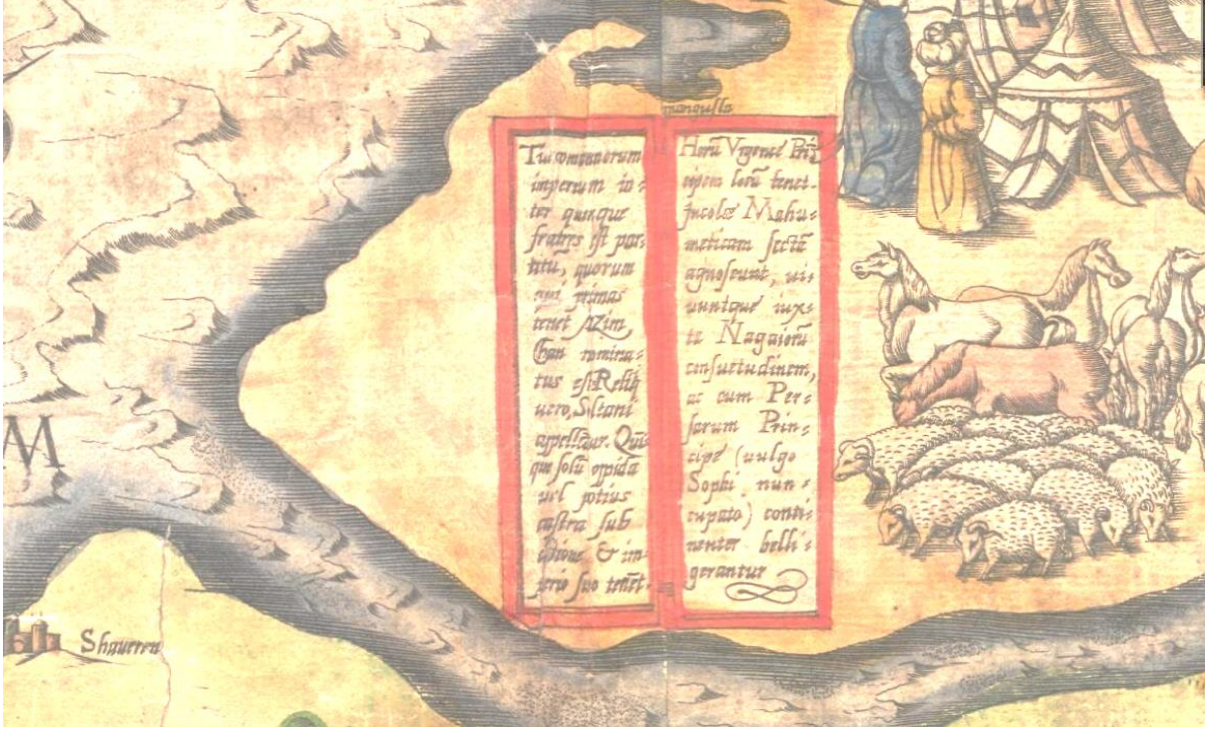 mangusla
Turcomannorum
imperium in-
ter quinque
fratres est par-
titū, quorum
qui primas
tenet Azim
Chan nomina-
tus est Reliq
uero, Sultani
appellātur. Qūi-
que solū oppida
uel potius
castra sub
& im-
perio suo tenēt.
Horū Vrgence Prī-
cipem locū tenet.
Incolæ Mahu-
meticam sectā
agnoscunt, ui-
uuntque iux-
ta Nagaiorū
consuetudinem,
ac cum Per-
sarum Prin-
cipe (uulgo
Sophi nun-
cupato) conti-
nenter belli-
gerantur
M
Shaueren